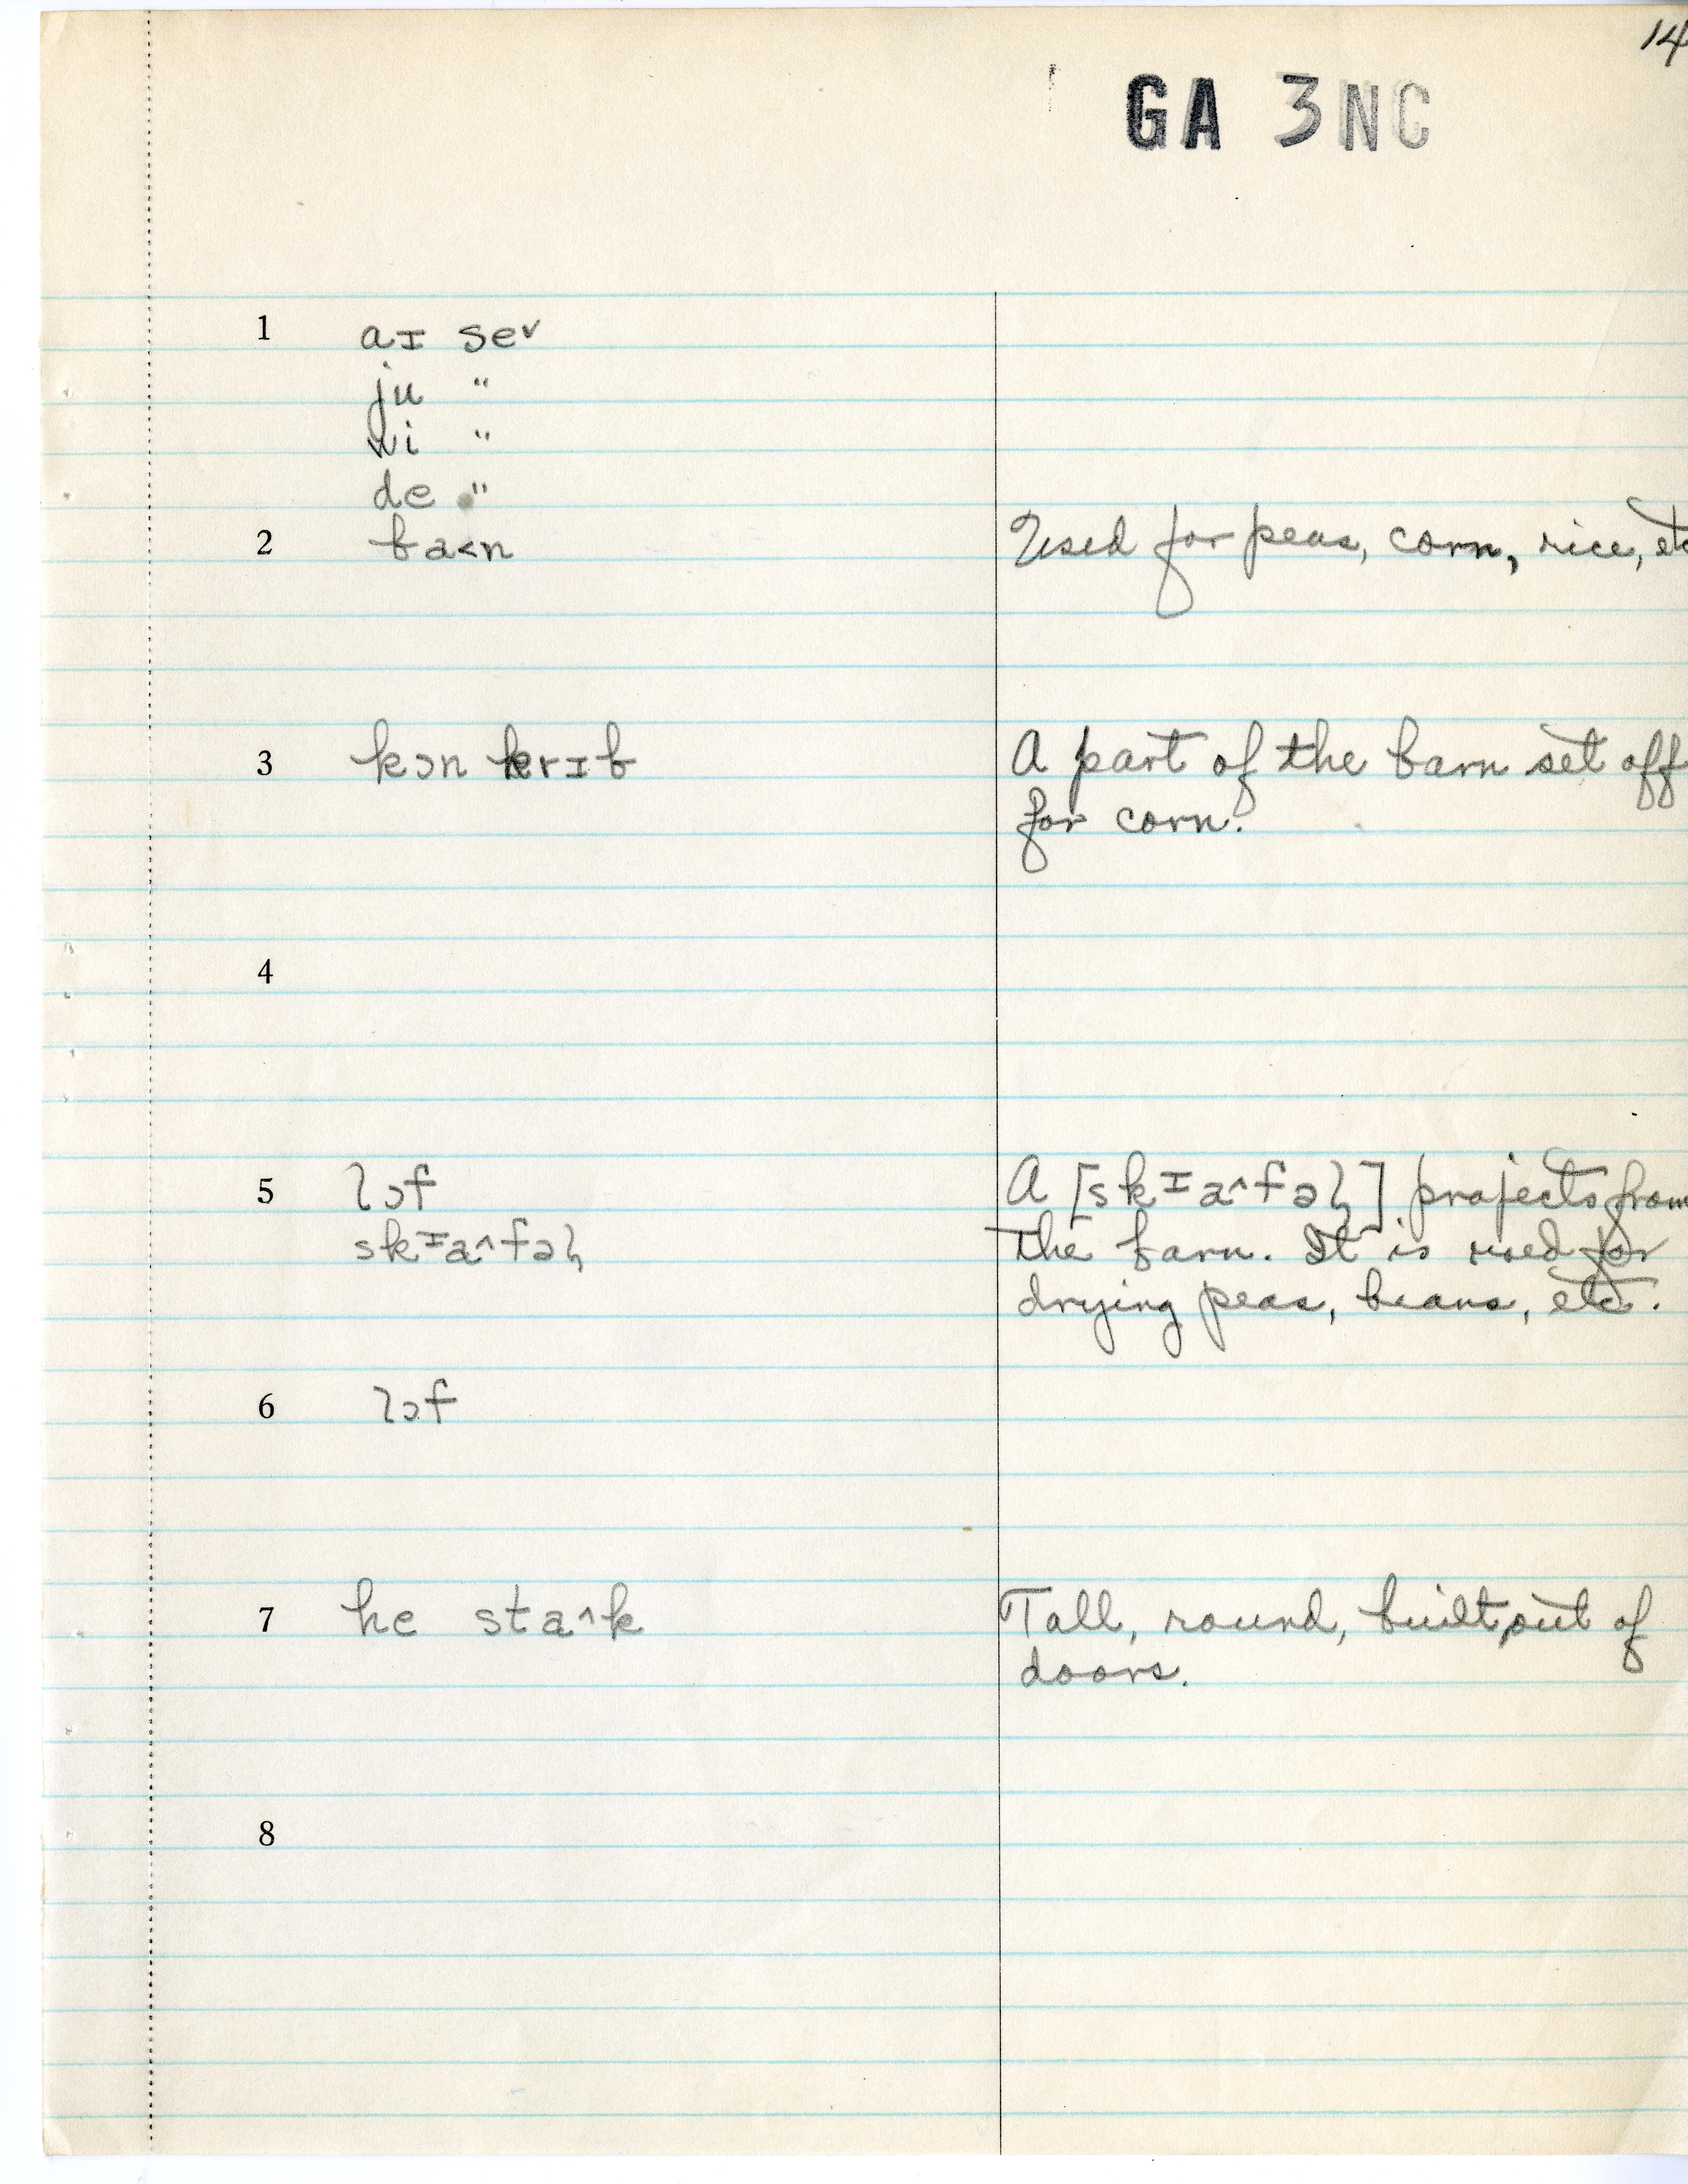 14
GA 3NC
1 aɪ se˅
ju "
wi "
de "
2 ba˂n Used for peas, corn, rice, etc
3 kɔn krɪb A part of the barn set off
for corn.
4
5 lɔf A [skɪa˄fəl̩] projects from
skɪa˄fəl̩ the barn. It is used for
drying peas, beans, etc.
6 lɔf
7 he sta˄k Tall, round, built out of
doors.
8